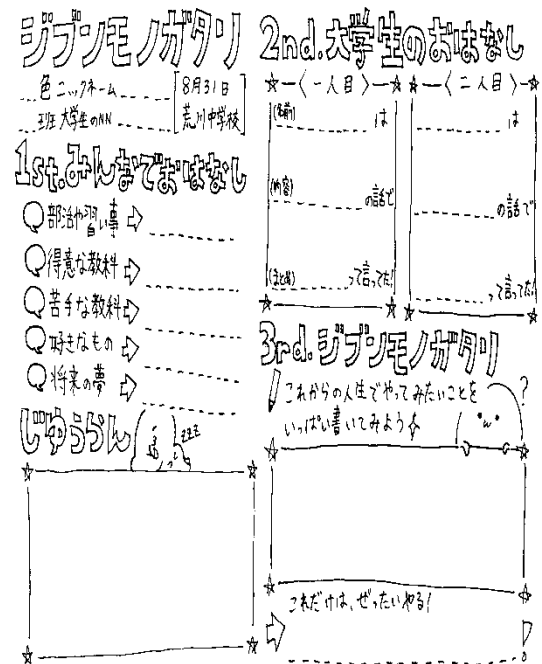 ジブンモノガタリ
色 ニックネーム
班 大学生のNN
8月31日
荒川中学校
1st.みんなでおはなし
Q部活や習い事⇨
Q得意な教科⇨
Q苦手な教科⇨
Q好きなもの⇨
Q将来の夢⇨
じゆうらん
zzz
2nd.大学生のおはなし
☆―〈一人目〉―☆
(名前) は
(内容) の話で
(まとめ) って言ってた!
☆―〈二人目〉―☆
は
の話で
って言ってた!
3rd.ジブンモノガタリ
これからの人生でやってみたいことを
いっぱい書いてみよう
?
これだけは、ぜったいやる!
⇨ !